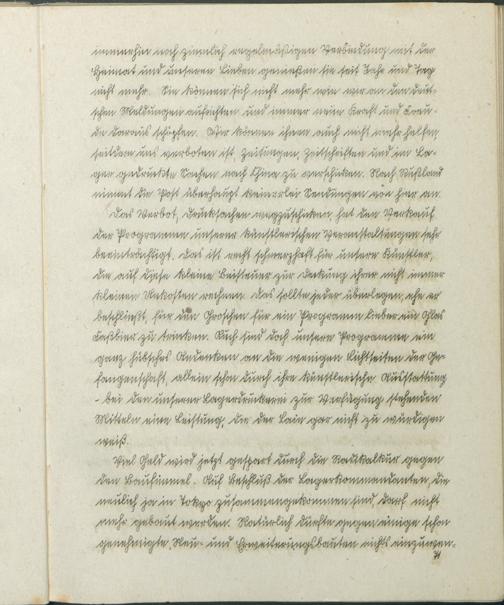 immerhin noch ziemlich regelmäßigen Verbindung mit der
Heimat und unseren Lieben genießen sie seit Jahr und Tag
nicht mehr. Sie können sich nicht mehr wie wir an den deut-
schen Meldungen aufrichten und immer neue Kraft und Freu-
de daraus schöpfen. Wir können ihnen auch nicht mehr helfen,
seitdem uns verboten ist, Zeitungen, Zeitschriften und im La-
ger gedruckte Sachen nach China zu verschicken. Nach Rußland
nimmt die Post überhaupt keinerlei Sendungen von hier an.
Das Verbot, Drucksachen wegzuschicken, hat den Verkauf
der Programme unserer künstlerischen Veranstaltungen sehr
beeinträchtigt. Das ist recht schmerzhaft für unsere Künstler,
die auf diese kleine Beisteuer zur Deckung ihrer nicht immer
kleinen Unkosten rechnen. Das sollte jeder überlegen, ehe er
beschließt, für den Groschen für ein Programm lieber ein Glas
Faßbier zu trinken. Auch sind doch unsere Programme ein
ganz hübsches Andenken an die wenigen Lichtseiten der Ge-
fangenschaft, allein schon durch ihre künstlerische Ausstattung
- bei den unserer Lagerdruckerei zur Verfügung stehenden
Mitteln eine Leistung, die der Laie gar nicht zu würdigen
weiß.
Viel Geld wird jetzt gespart durch die Radikalkur gegen
den Baufimmel. Auf Beschluß der Lagerkommandanten, die
neulich ja in Tokyo zusammengekommen sind, darf nicht
mehr gebaut werden. Natürlich dürfte gegen einige schon
genehmigte Neu- und Erweiterungsbauten nichts einzuwen-